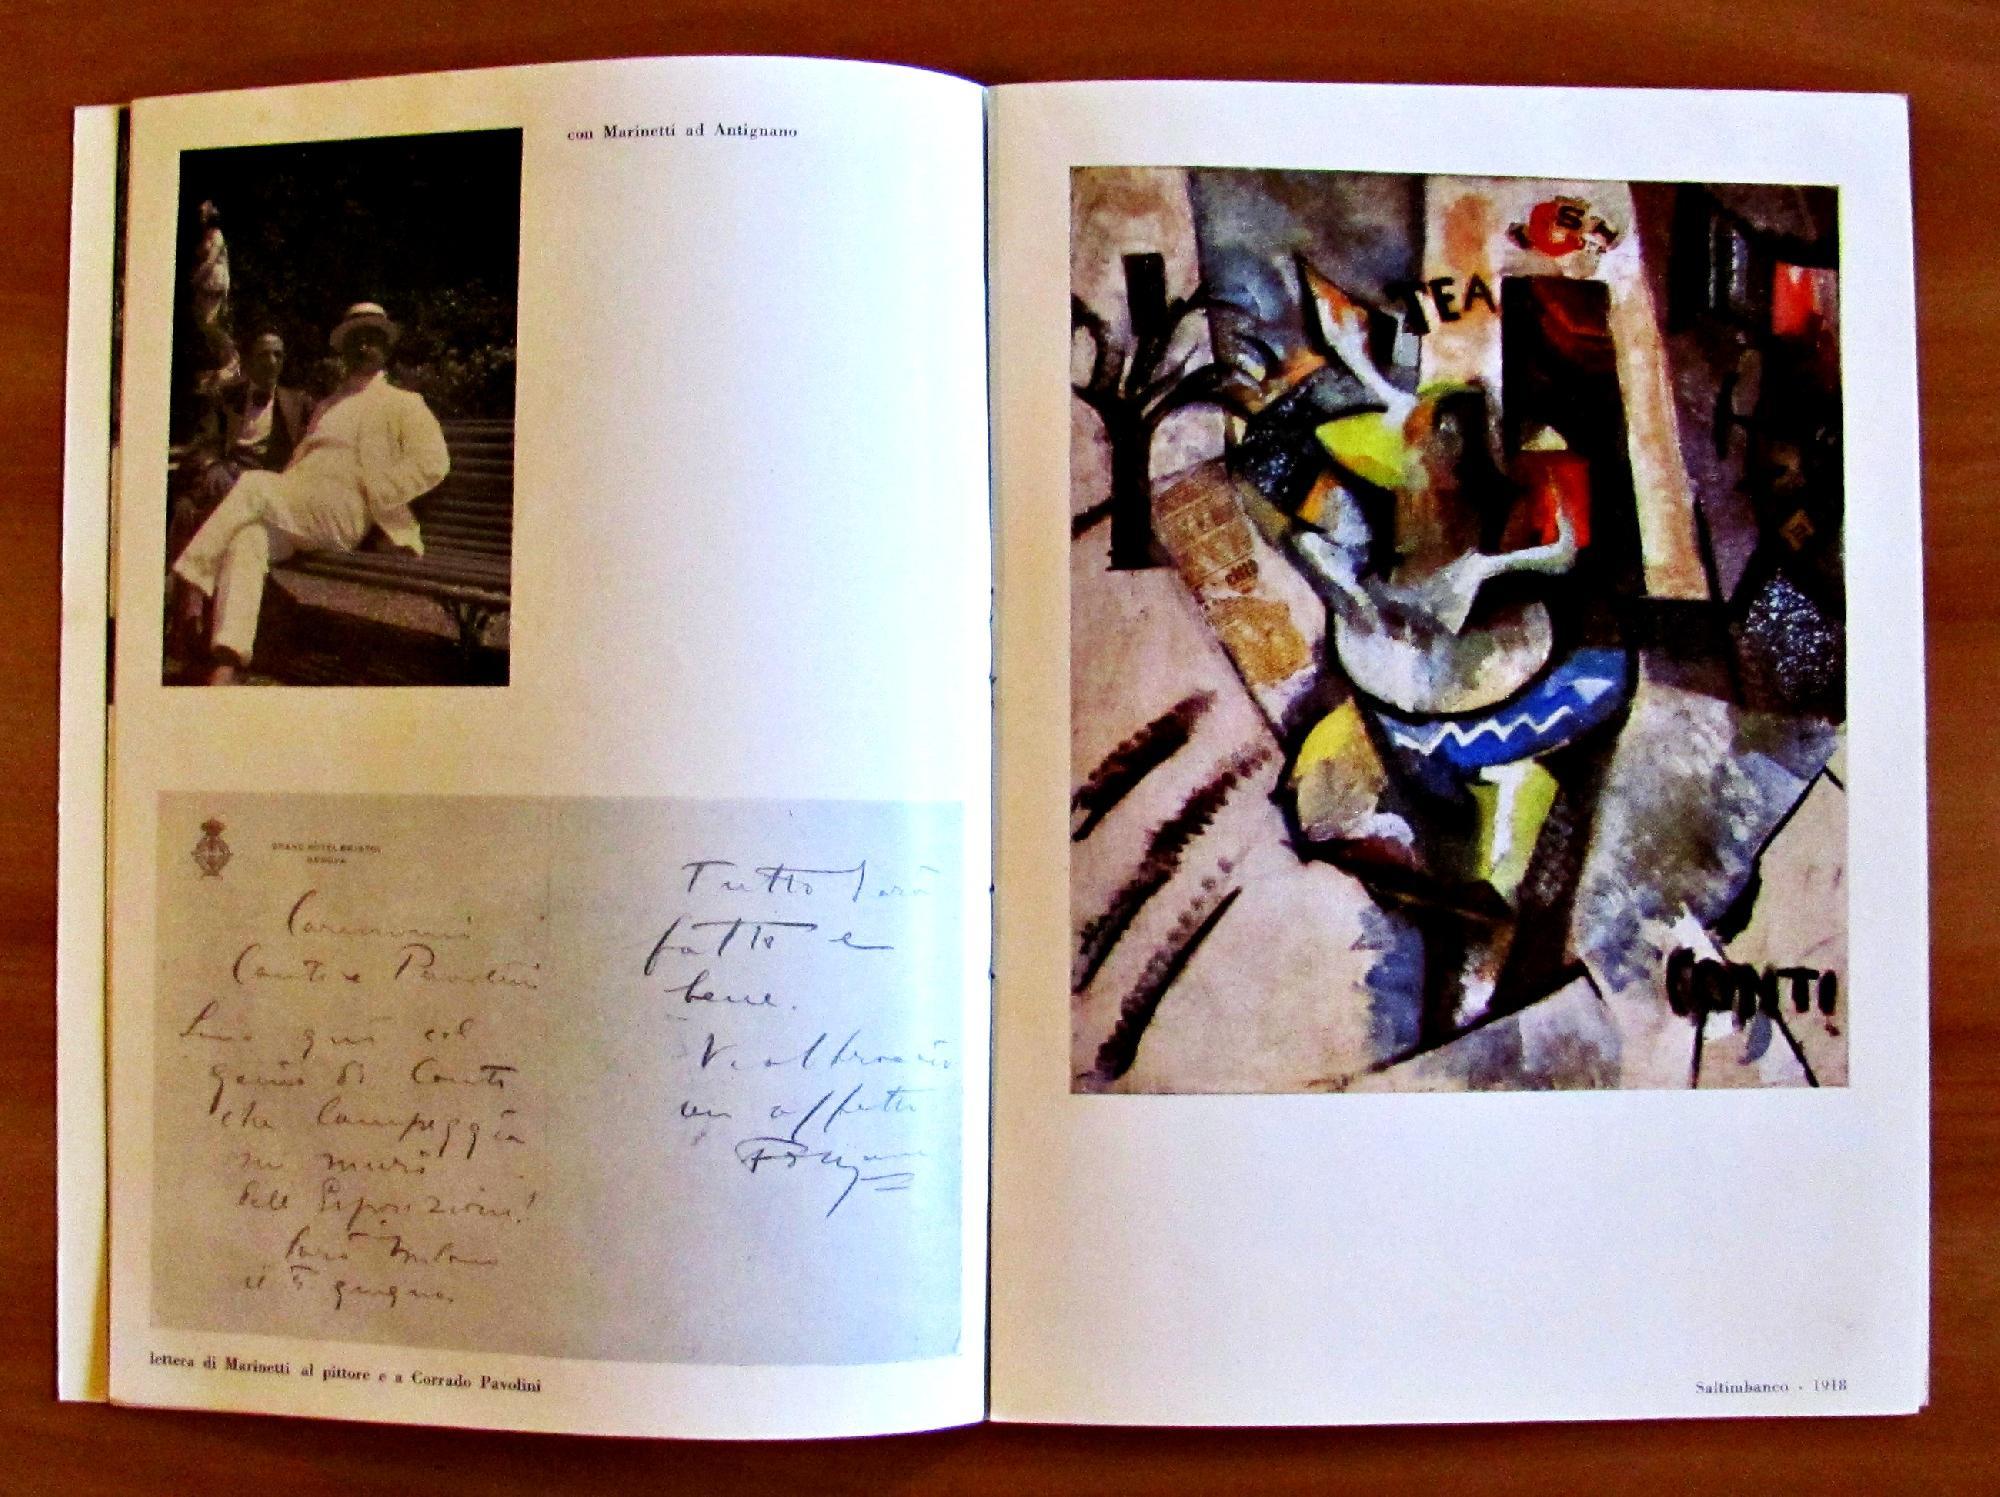 con Marinetti ad Antignano
GRAND HÔTEL BRISTOL
GENOVA
Carissimi
Conti e Pavolini
Sono qui col
genio di Conti
che campeggia
sui muri
dell'Esposizione!
Sarò Milano
il 5 giugno
Tutto sarà
fatto e
bene.
Vi abbraccio
con affetto
lettera di Marinetti al pittore e a Corrado Pavolini
TEA
CONTI
Saltimbanco - 1918